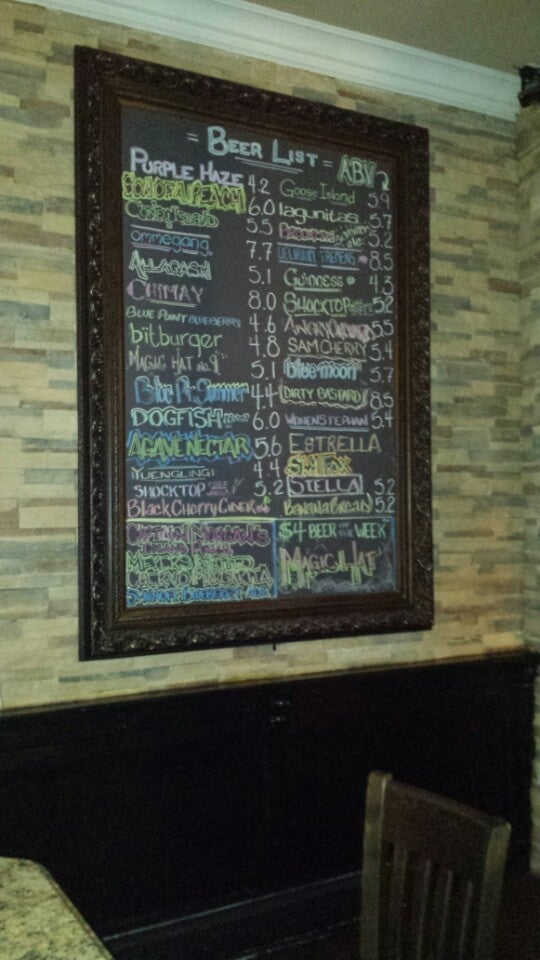 = BEER LIST = ABV
PURPLE HAZE 4.2
SONORA PEACH 6.0
5.5
ommegang 7.7
ALLAGASH 5.1
CHIMAY 8.0
BLUE POINT BLUEBERRY 4.6
bitburger 4.8
MAGIC HAT no. 9 5.1
Blue Pt. Summer 4.4
DOGFISH 6.0
AGAVE NECTAR 5.6
YUENGLING 4.4
SHOCKTOP 5.2
Black Cherry Cider
Goose Island 5.9
lagunitas 5.7
summer ale 5.2
DELIRIUM TREMENS 8.5
Guinness 4.3
SHOCKTOP 5.2
ANGRY ORCHARD 5.5
SAM CHERRY 5.4
blue moon 5.7
DIRTY BASTARD 8.5
WEIHENSTEPHAN 5.4
ESTRELLA
STELLA 5.2
BANANA BREAD 5.2
CAPTAIN MORGAN'S
$4 BEER OF THE WEEK
MAGIC HAT